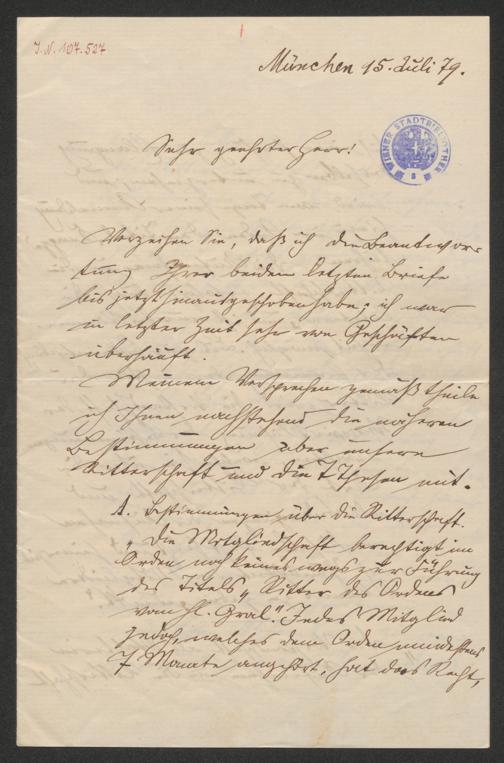 J.N. 107.527
München 15. Juli 79.
WIENER STADTBIBLIOTHEK
Sehr geehrter Herr!
Verzeihen Sie, daß ich die Beantwor-
tung Ihrer beiden letzten Briefe
bis jetzt hinausgeschoben habe; ich war
in letzter Zeit sehr von Geschäften
überhäuft.
Meinem Versprechen gemäß theile
ich Ihnen nachstehend die näheren
Bestimmungen über unsere
Ritterschaft und die 7 Thesen mit.
A. Bestimmungen über die Ritterschaft.
„Die Mitgliedschaft berechtigt im
Orden noch keineswegs zur Führung
des Titels „Ritter des Ordens
vom hl. Gral." Jedes Mitglied
jedoch, welches dem Orden mindestens
7 Monate angehört, hat das Recht,